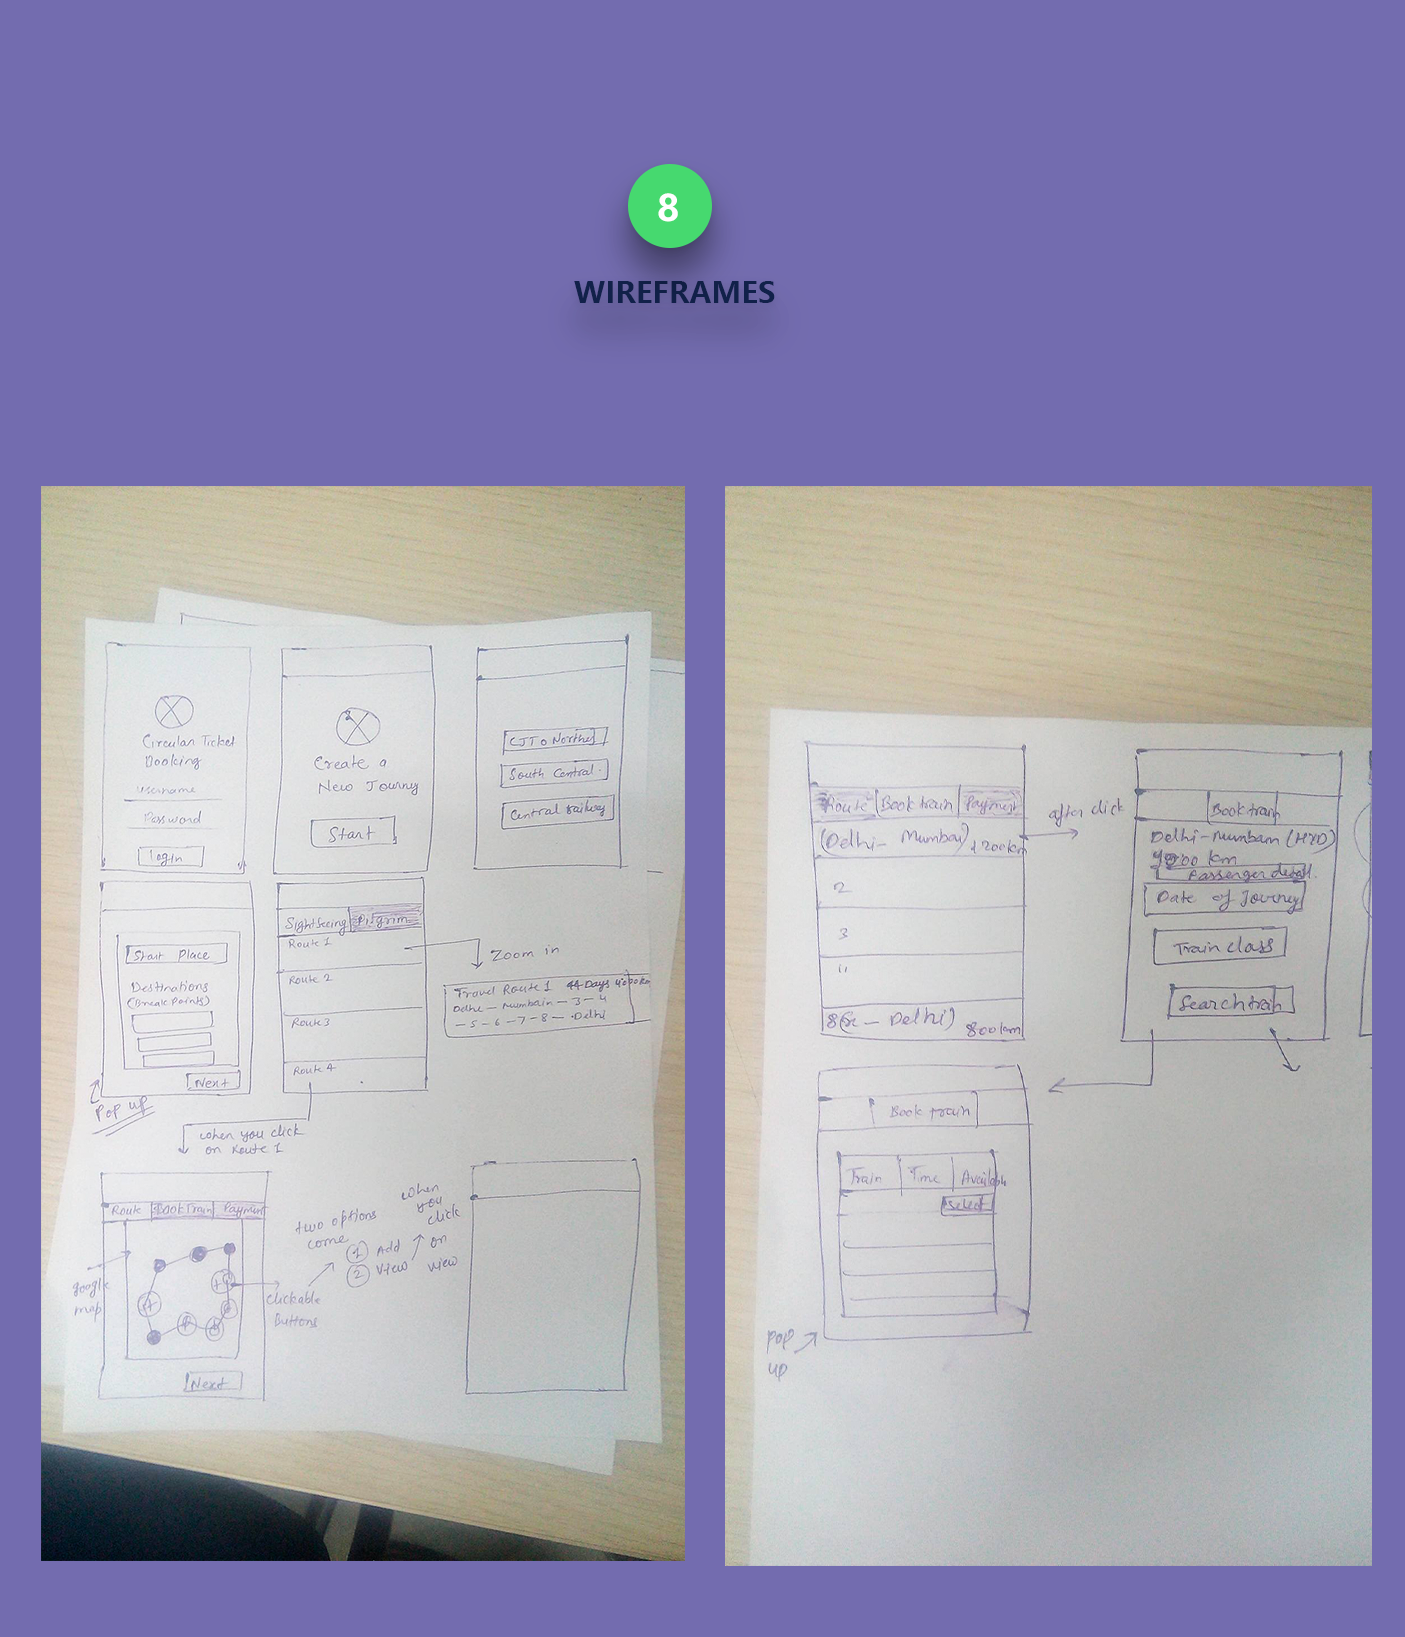 8
WIREFRAMES
Circular Ticket
Booking
username
Password
Login
Create a
New Journey
Start
South Central.
Central railway
Start Place
Destinations
(Break Points)
Next
Pop up
Sightseeing Pilgrim
Route 1
Route 2
Route 3
Route 4
Zoom in
Travel Route 1 44 Days
Delhi — Mumbain — 3 — 4
— 5 — 6 — 7 — 8 — Delhi
when you click
on Route 1
Route Book Train Payment
google
map
Next
clickable
Buttons
two options
come
1 Add
2 view
when
you
click
on
view
Route Book train Payment
(Delhi — Mumbai) 1200km
2
3
8( — Delhi) 800km
after click
Book train
Delhi-Mumbam (HYD)
km
Passenger detail.
Date of Journey
Train class
Search train
Book train
Train Time
select
pop
up